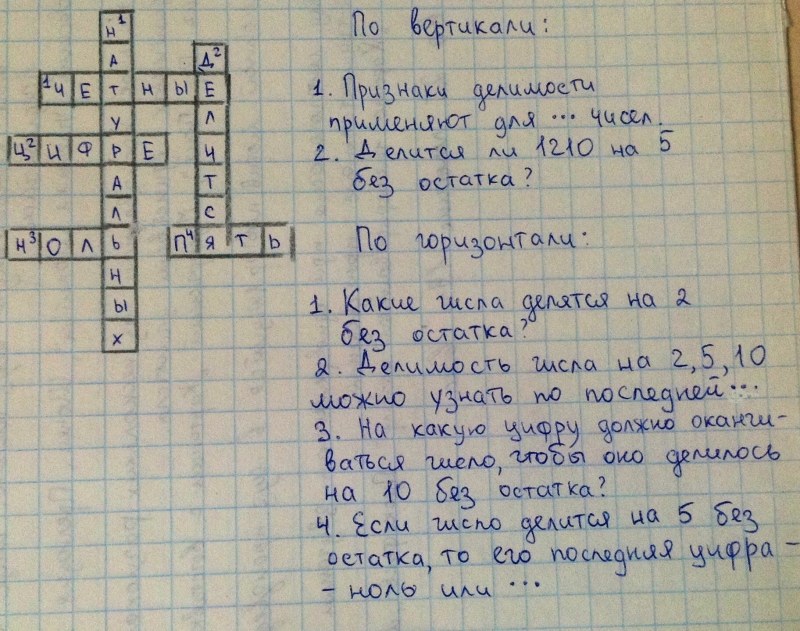 Н¹
А Д²
¹ЧЕТНЫЕ
У Л
Ц²ИФРЕ И
А Т
Л С
Н³ОЛЬ П⁴ЯТЬ
Н
Ы
Х
По вертикали:
1. Признаки делимости
применяют для ... чисел.
2. Делится ли 1210 на 5
без остатка?
По горизонтали:
1. Какие числа делятся на 2
без остатка?
2. Делимость числа на 2, 5, 10
можно узнать по последней...
3. На какую цифру должно оканчи-
ваться число, чтобы оно делилось
на 10 без остатка?
4. Если число делится на 5 без
остатка, то его последняя цифра -
- ноль или ...